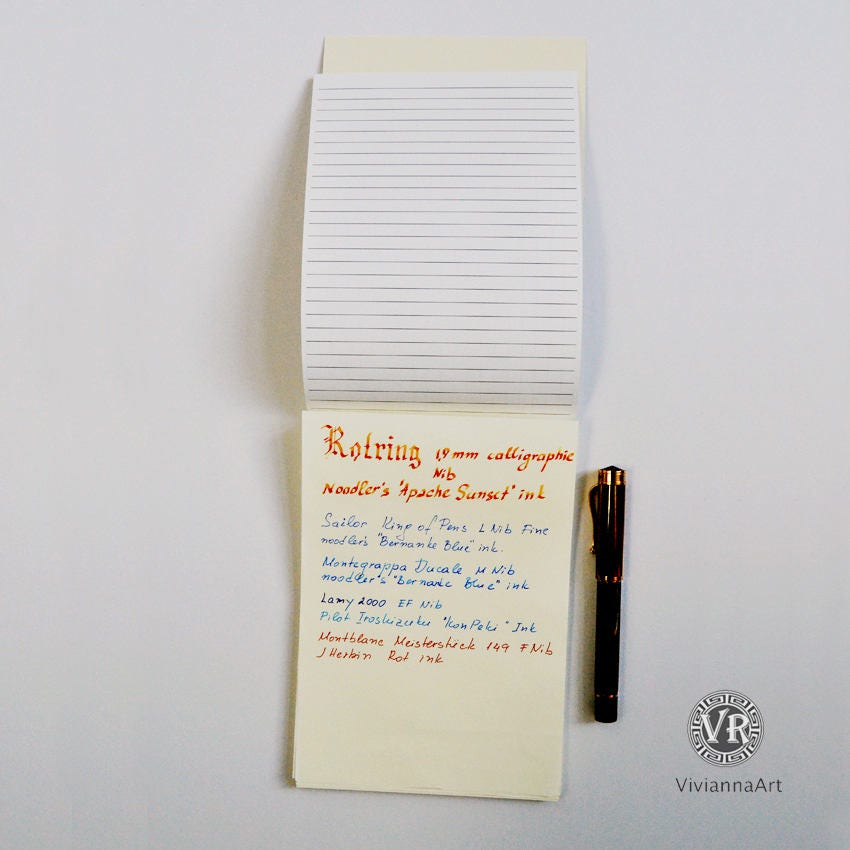 Rotring 1,9 mm calligraphic
Nib
Noodler's 'Apache Sunset' ink
Sailor King of Pens L Nib Fine
noodler's "Bernanke Blue" ink.
Montegrappa Ducale M Nib
noodler's "Bernanke Blue" ink
Lamy 2000 EF Nib
Pilot Iroshizuku "Kon Peki" Ink
Montblanc Meisterstück 149 F Nib
J Herbin Rot ink
VR
ViviannaArt